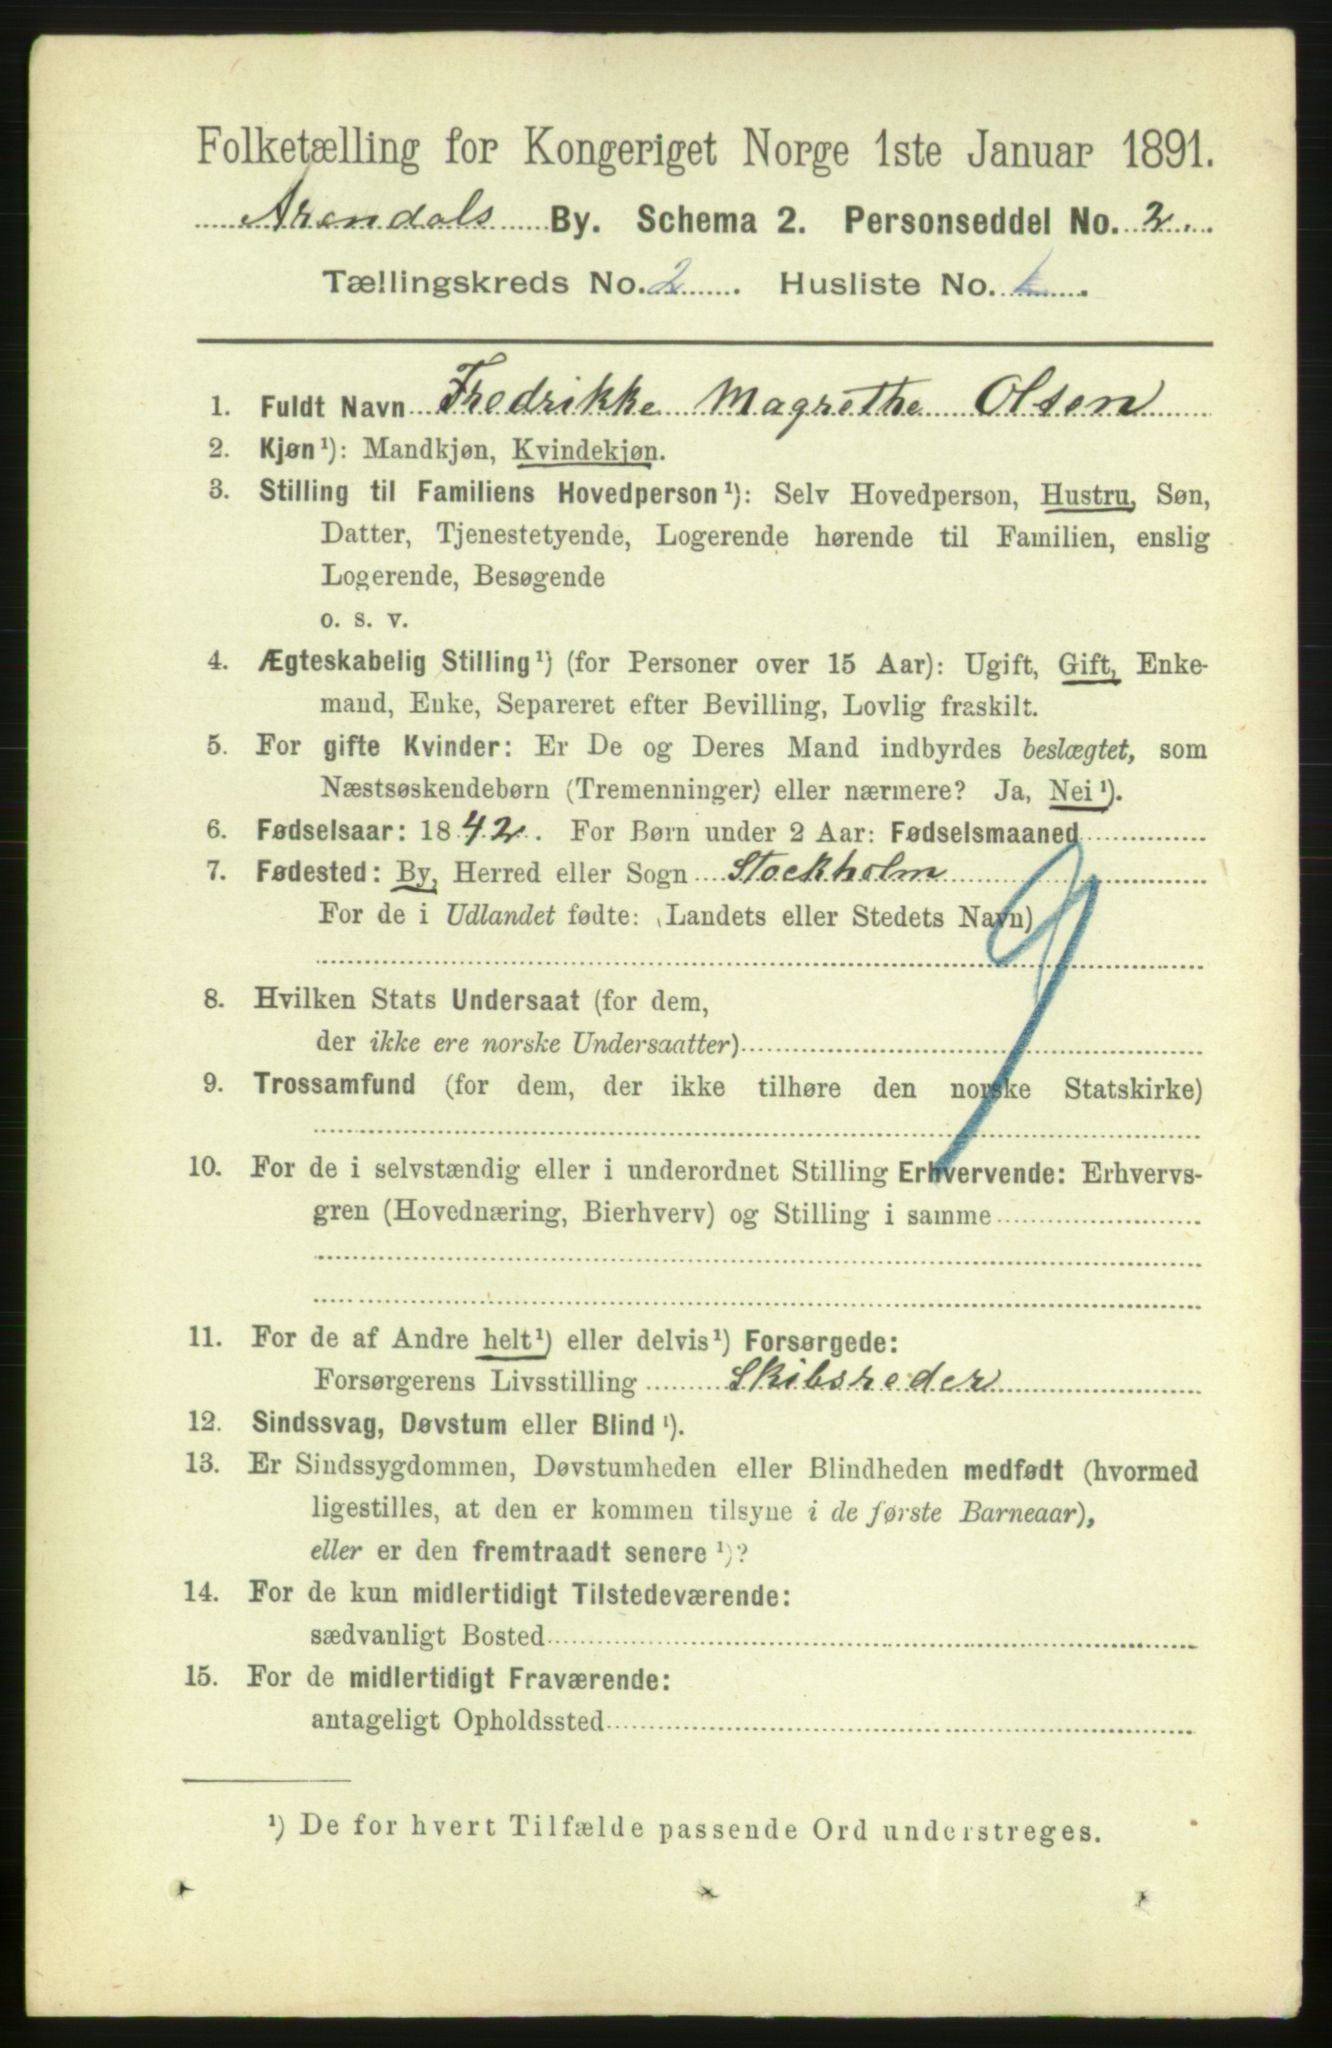 Folketælling for Kongeriget Norge 1ste Januar 1891.
Arendals By. Schema 2. Personseddel No. 2.
Tællingskreds No. 2. Husliste No.
1. Fuldt Navn Fredrikke Magrethe Olsen
2. Kjøn¹): Mandkjøn, Kvindekjøn.
3. Stilling til Familiens Hovedperson¹): Selv Hovedperson, Hustru, Søn,
Datter, Tjenestetyende, Logerende hørende til Familien, enslig
Logerende, Besøgende
o. s. v.
4. Ægteskabelig Stilling¹) (for Personer over 15 Aar): Ugift, Gift, Enke-
mand, Enke, Separeret efter Bevilling, Lovlig fraskilt.
5. For gifte Kvinder: Er De og Deres Mand indbyrdes beslægtet, som
Næstsøskendebørn (Tremenninger) eller nærmere? Ja, Nei¹).
6. Fødselsaar: 1842. For Børn under 2 Aar: Fødselsmaaned
7. Fødested: By, Herred eller Sogn Stockholm
For de i Udlandet fødte: (Landets eller Stedets Navn)
9
8. Hvilken Stats Undersaat (for dem,
der ikke ere norske Undersaatter)
9. Trossamfund (for dem, der ikke tilhøre den norske Statskirke)
10. For de i selvstændig eller i underordnet Stilling Erhvervende: Erhvervs-
gren (Hovednæring, Bierhverv) og Stilling i samme
11. For de af Andre helt¹) eller delvis¹) Forsørgede:
Forsørgerens Livsstilling Skibsreder
12. Sindssvag, Døvstum eller Blind¹).
13. Er Sindssygdommen, Døvstumheden eller Blindheden medfødt (hvormed
ligestilles, at den er kommen tilsyne i de første Barneaar),
eller er den fremtraadt senere¹)?
14. For de kun midlertidigt Tilstedeværende:
sædvanligt Bosted
15. For de midlertidigt Fraværende:
antageligt Opholdssted
¹) De for hvert Tilfælde passende Ord understreges.